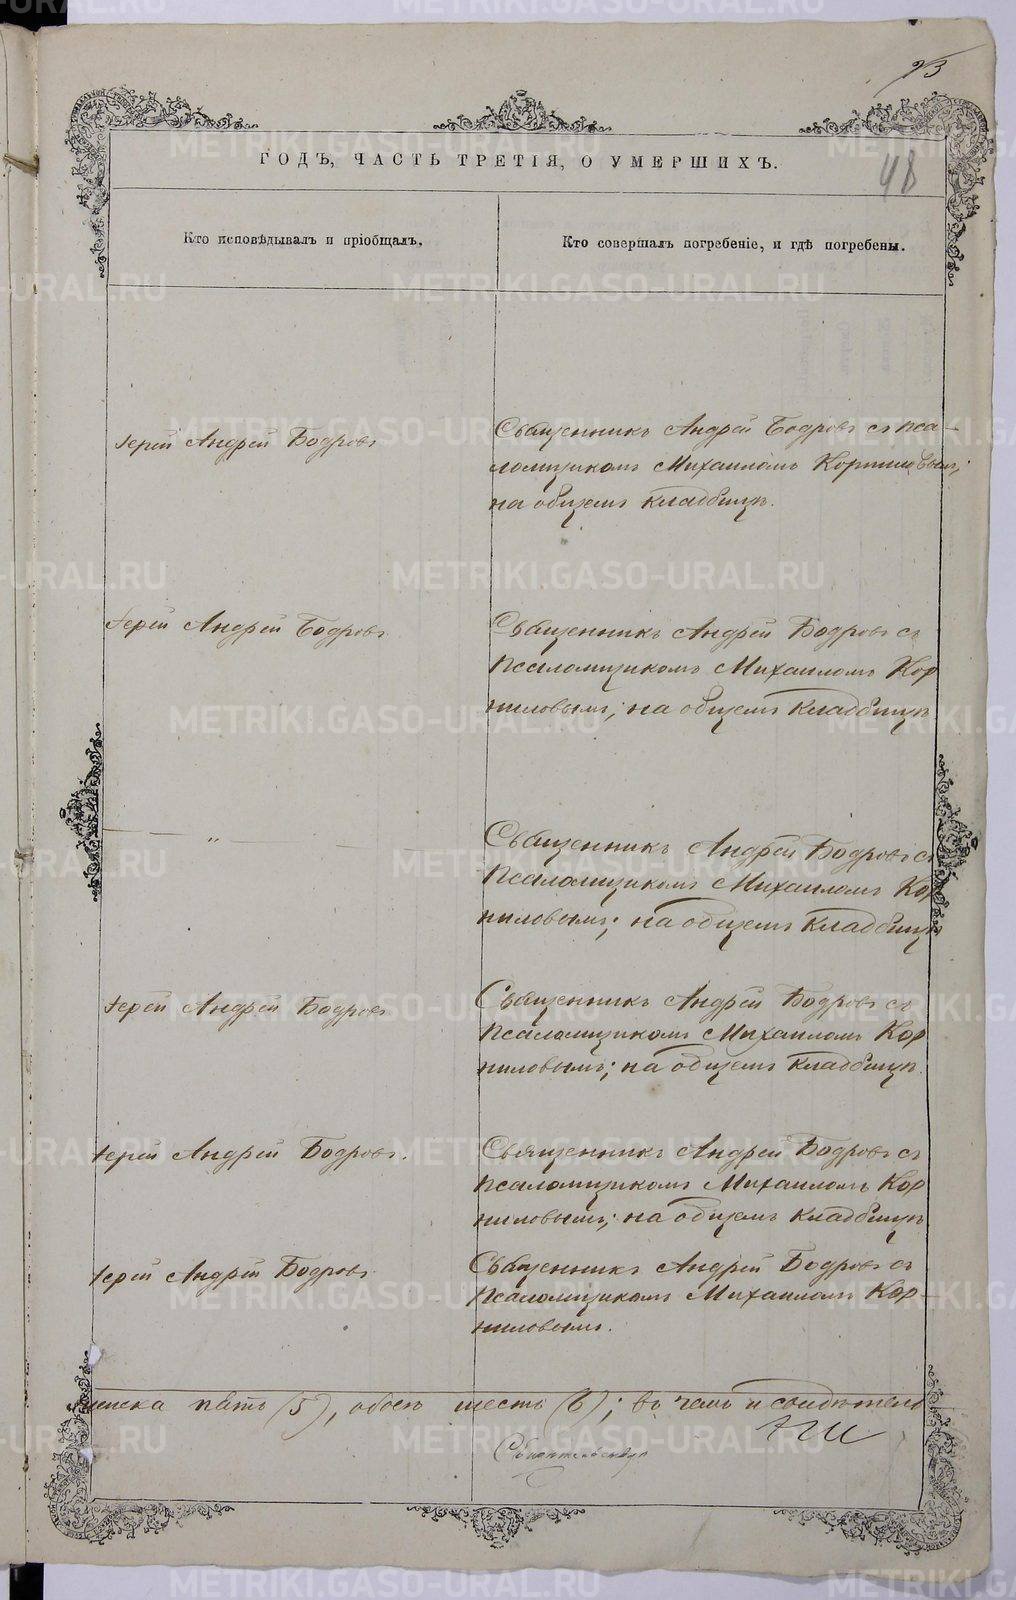 23
48
ГОДЪ, ЧАСТЬ ТРЕТІЯ, О УМЕРШИХЪ.
Кто исповѣдывалъ и пріобщалъ.
Кто совершалъ погребеніе, и гдѣ погребены.
Іерей Андрей Бодровъ
Священникъ Андрей Бодровъ съ пса-
ломщикомъ Михаиломъ Корниловымъ;
на общемъ кладбищѣ.
Іерей Андрей Бодровъ
Священникъ Андрей Бодровъ съ
псаломщикомъ Михаиломъ Кор
ниловымъ; на общемъ кладбищѣ
— „ —
Священникъ Андрей Бодровъ съ
псаломщикомъ Михаиломъ Кор
ниловымъ; на общемъ кладбищѣ
Іерей Андрей Бодровъ
Священникъ Андрей Бодровъ съ
псаломщикомъ Михаиломъ Кор
ниловымъ; на общемъ кладбищѣ.
Іерей Андрей Бодровъ.
Священникъ Андрей Бодровъ съ
псаломщикомъ Михаиломъ Кор
ниловымъ; на общемъ кладбищѣ
Іерей Андрей Бодровъ
Священникъ Андрей Бодровъ съ
псаломщикомъ Михаиломъ Кор-
ниловымъ.
женска пять (5), обоего шесть (6); въ чемъ и свидѣтель
METRIKI.GASO-URAL.RU